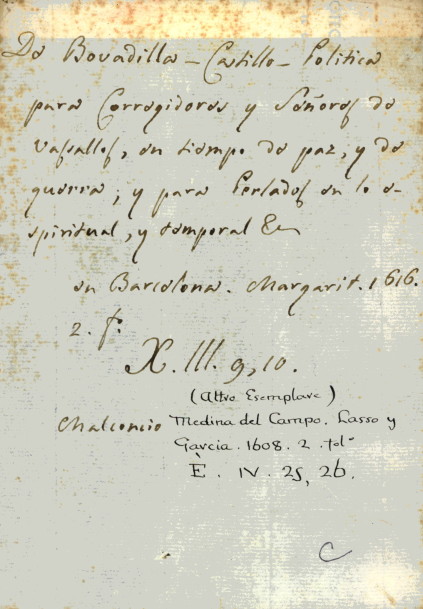 De Bovadilla – Castillo – Politica
para Corregidores y Señores de
vasallos, en tiempo de paz, y de
guerra; y para Perlados en lo e-
spiritual, y temporal &c
en Barcelona. Margarit. 1616.
2. fo.
X. III. 9, 10.
(Altro Esemplare)
Malconcio Medina del Campo. Lasso y
Garcia. 1608. 2. fol.°
E. IV. 25, 26.
C